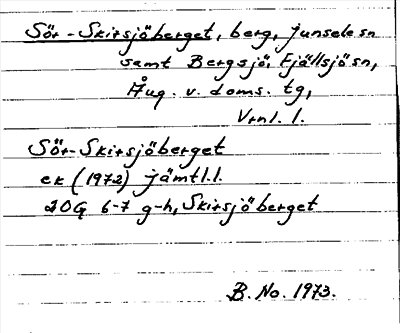 Sör-Skirsjöberget, berg, Junsele sn
samt Bergsjö, Fjällsjö sn,
Åug. v. doms. tg,
Vrnl. l.
Sör-Skirsjöberget
ek (1972) jämtl.l.
20G 6-7 g-h, Skirsjöberget
B. No. 1973.